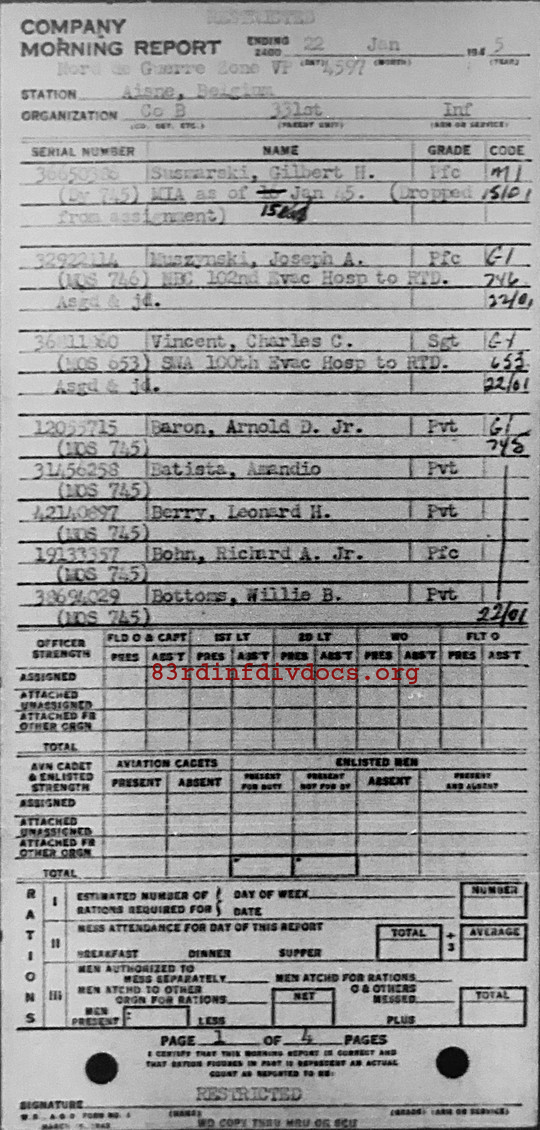 RESTRICTED
COMPANY
MORNING REPORT ENDING 2400 22 Jan 194 5
(DAY) (MONTH) (YEAR)
Nord de Guerre Zone VP 4597
STATION Aisne, Belgium
ORGANIZATION Co B 331st Inf
(CO. DET. ETC.) (PARENT UNIT) (ARM OR SERVICE)
SERIAL NUMBER NAME GRADE CODE
Gilbert H. Pfc M1
745) MIA as of Jan 45. (Dropped 15/01
from assignment)
32922114 Muszynski, Joseph A. Pfc G1
(MOS 746) NBC 102nd Evac Hosp to RTD. 746
Asgd & jd. 22/01
Vincent, Charles C. Sgt G1
(MOS 653) 100th Evac Hosp to RTD. 653
Asgd & jd. 22/01
12055715 Baron, Arnold D. Jr. Pvt G1
(MOS 745) 745
31456258 Batista, Amandio Pvt
(MOS 745)
42140897 Berry, Leonard H. Pvt
(MOS 745)
19133357 Bohn, Richard A. Jr. Pfc
(MOS 745)
38694029 Bottoms, Willie B. Pvt
(MOS 745) 22/01
OFFICER STRENGTH FLD O & CAPT 1ST LT 2D LT WO FLT O
PRES ABS'T PRES ABS'T PRES ABS'T PRES ABS'T PRES ABS'T
83rdinfdivdocs.org
ASSIGNED
ATTACHED UNASSIGNED
ATTACHED FR OTHER ORGN
TOTAL
AVN CADET & ENLISTED STRENGTH AVIATION CADETS ENLISTED MEN
PRESENT ABSENT PRESENT FOR DUTY PRESENT NOT FOR DY ABSENT PRESENT AND ABSENT
ASSIGNED
ATTACHED UNASSIGNED
ATTACHED FR OTHER ORGN
TOTAL
RATIONS
I ESTIMATED NUMBER OF RATIONS REQUIRED FOR DAY OF WEEK NUMBER
DATE
II MESS ATTENDANCE FOR DAY OF THIS REPORT TOTAL ÷ 3 AVERAGE
BREAKFAST DINNER SUPPER
III MEN AUTHORIZED TO MESS SEPARATELY MEN ATCHD FOR RATIONS
MEN ATCHD TO OTHER ORGN FOR RATIONS NET O & OTHERS MESSED TOTAL
MEN PRESENT LESS PLUS
PAGE 1 OF 4 PAGES
I CERTIFY THAT THIS MORNING REPORT IS CORRECT AND
THAT RATION FIGURES IN PART II REPRESENT AN ACTUAL
COUNT AS REPORTED TO ME:
RESTRICTED
SIGNATURE
(NAME) (GRADE) (ARM OR SERVICE)
W.D., A.G.O. FORM NO. 1
MARCH 1943
WD COPY THRU MRU OR SCU